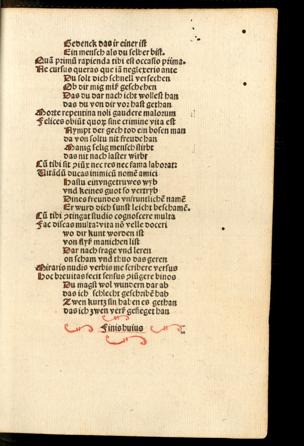 Gedenck das ir einer ist
Ein mensch als du selber bist.
Quā primū rapienda tibi est occasio prima.
Ne cursus queras que iā neglexeris ante
Du solt dich schnell versechen
Ob dir mig misz geschehen
Das du dar nach icht wollest han
das du von dir vor hast gethan
Morte repentina noli gaudere malorum
Felices obiūt quorz sine crimine vita est
Nympt der gech tod ein bosen man
da von soltu nit freude han
Manig selig mensch stirbt
das nit nach laster wirbt
Cū tibi sit ꝯiūx nec res nec fama laborat:
Vitādū ducas inimicū nomē amici
Hastu ein vngetruwes wyb
vnd keines guot so vertryb
Dines freundes vnfruntlichē namē
Er wurd dich sunst leicht beschamē.
Cū tibi ꝯtingat studio cognoscere multa
Fac discas multa vita nō velle doceri
wo dir kunt worden ist
von flysz manichen list
Dar nach frage vnd leren
on scham vnd thuo das geren
Miraris nudis verbis me scribere versus
Hoc breuitas fecit sensus ꝯiūgere binos
Du magst wol wundern dar ab
das ich schlecht geschribē hab
Zwen kurtz sin hab en es gethan
das ich zwen versz gefieget han
Finis huius